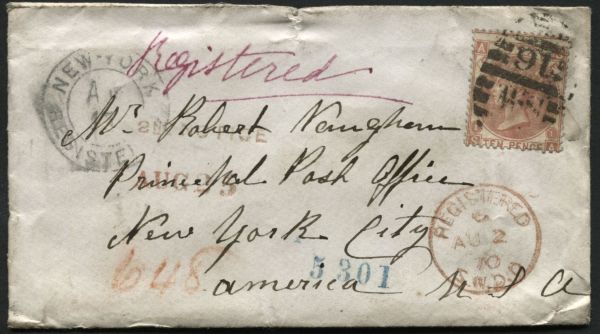 Registered
NEW-YORK
AU
Mr. Robert Vaughan
2ND NOTICE
AUG 25
Principal Post Office
New York City
America U S A
648
5301
REGISTERED
AU 2
70
91
TEN PENCE
A
A